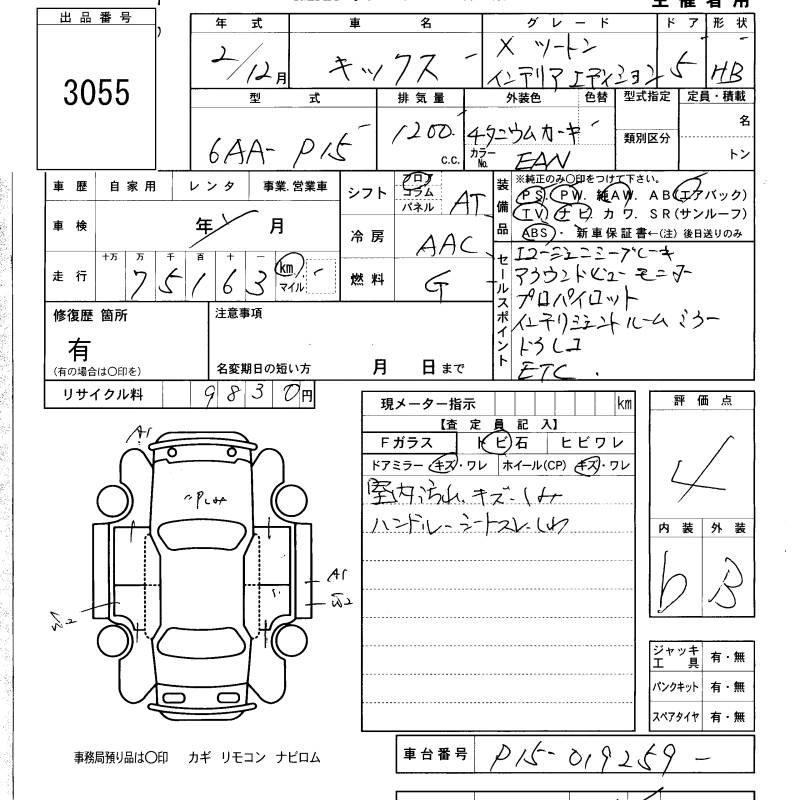 出品番号
3055
年式 車名 グレード ドア 形状
2/12月 キックス X ツートン インテリアエディション 5 HB
型式 排気量 外装色 色替 型式指定 定員・積載
6AA- P15 1200 c.c. チタニウムカーキ 類別区分 名
カラーNo. EAN トン
車歴 自家用 レンタ 事業.営業車
車検 年 月
走行 十万 万 千 百 十 一
75163 km マイル
シフト フロア コラム パネル AT
冷房 AAC
燃料 G
装備品
※純正のみ〇印をつけて下さい。
PS. PW. 純AW. AB(エアバック)
TV ナビ カワ. SR(サンルーフ)
ABS・ 新車保証書←(注)後日送りのみ
セールスポイント
エマージェンシーブレーキ
アラウンドビューモニター
プロパイロット
インテリジェントルームミラー
ドラレコ
ETC.
修復歴 箇所
有
(有の場合は〇印を)
注意事項
名変期日の短い方 月 日まで
リサイクル料 9830円
現メーター指示 km
【査定員記入】
Fガラス トビ石 ヒビワレ
ドアミラー キズ・ワレ ホイール(CP) キズ・ワレ
室内汚れ.キズ.シミ
ハンドル-シートスレ.シワ
評価点
4
内装 外装
b B
A1
Pしみ
A1
W2
W2
ジャッキ 工具 有・無
パンクキット 有・無
スペアタイヤ 有・無
事務局預り品は〇印 カギ リモコン ナビロム
車台番号 P15-019259-